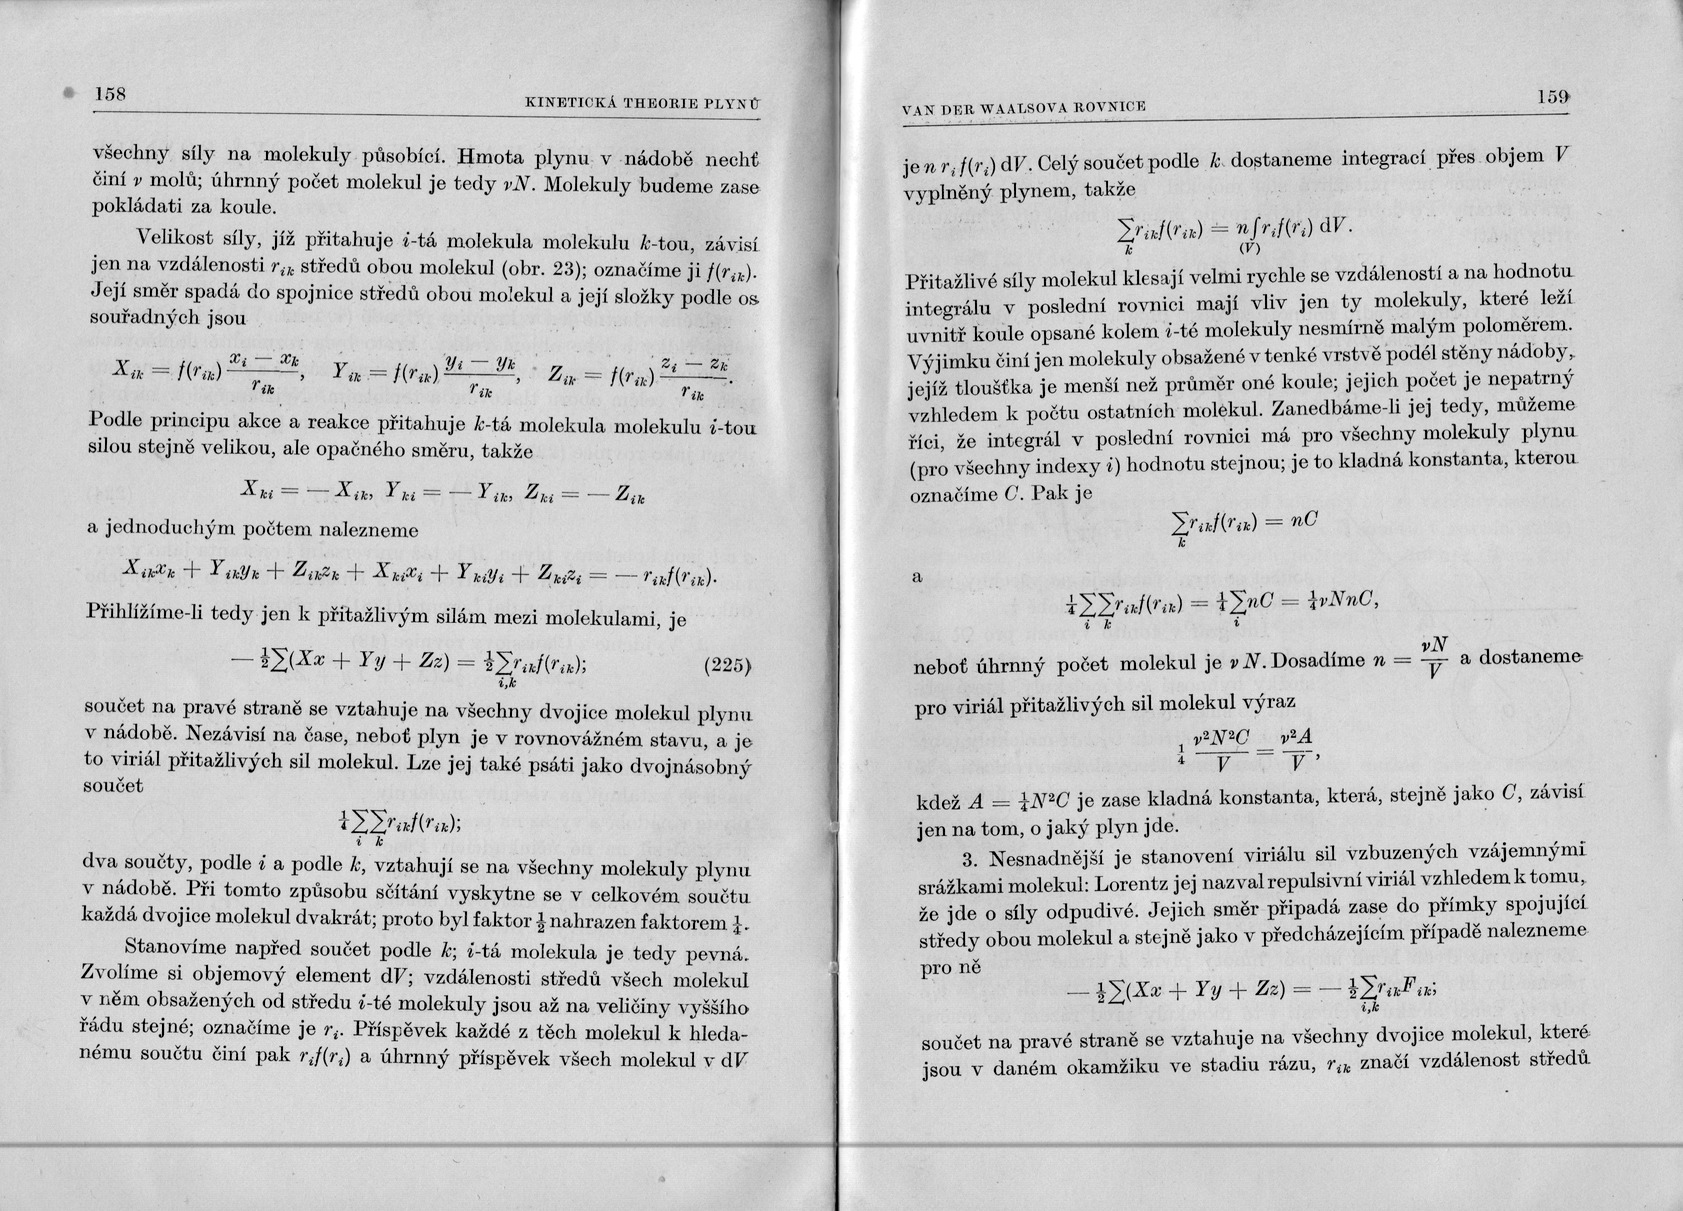 158
KINETICKÁ THEORIE PLYNŮ
všechny síly na molekuly působící. Hmota plynu v nádobě nechť
činí ν molů; úhrnný počet molekul je tedy νN. Molekuly budeme zase
pokládati za koule.
Velikost síly, jíž přitahuje i-tá molekula molekulu k-tou, závisí
jen na vzdálenosti r_{ik} středů obou molekul (obr. 23); označíme ji f(r_{ik}).
Její směr spadá do spojnice středů obou molekul a její složky podle os
souřadných jsou
X_{ik} = f(r_{ik}) \frac{x_i — x_k}{r_{ik}}, Y_{ik} = f(r_{ik}) \frac{y_i — y_k}{r_{ik}}, Z_{ik} = f(r_{ik}) \frac{z_i — z_k}{r_{ik}}.
Podle principu akce a reakce přitahuje k-tá molekula molekulu i-tou
silou stejně velikou, ale opačného směru, takže
X_{ki} = — X_{ik}, Y_{ki} = — Y_{ik}, Z_{ki} = — Z_{ik}
a jednoduchým počtem nalezneme
X_{ik}x_k + Y_{ik}y_k + Z_{ik}z_k + X_{ki}x_i + Y_{ki}y_i + Z_{ki}z_i = — r_{ik}f(r_{ik}).
Přihlížíme-li tedy jen k přitažlivým silám mezi molekulami, je
— ½∑(Xx + Yy + Zz) = ½∑_{i,k} r_{ik}f(r_{ik}); (225)
součet na pravé straně se vztahuje na všechny dvojice molekul plynu
v nádobě. Nezávisí na čase, neboť plyn je v rovnovážném stavu, a je
to viriál přitažlivých sil molekul. Lze jej také psáti jako dvojnásobný
součet
¼∑_i∑_k r_{ik}f(r_{ik});
dva součty, podle i a podle k, vztahují se na všechny molekuly plynu
v nádobě. Při tomto způsobu sčítání vyskytne se v celkovém součtu
každá dvojice molekul dvakrát; proto byl faktor ½ nahrazen faktorem ¼.
Stanovíme napřed součet podle k; i-tá molekula je tedy pevná.
Zvolíme si objemový element dV; vzdálenosti středů všech molekul
v něm obsažených od středu i-té molekuly jsou až na veličiny vyššího
řádu stejné; označíme je r_i. Příspěvek každé z těch molekul k hleda-
nému součtu činí pak r_i f(r_i) a úhrnný příspěvek všech molekul v dV
VAN DER WAALSOVA ROVNICE
159
je n r_i f(r_i) dV. Celý součet podle k dostaneme integrací přes objem V
vyplněný plynem, takže
∑_k r_{ik}f(r_{ik}) = n∫_{(V)} r_i f(r_i) dV.
Přitažlivé síly molekul klesají velmi rychle se vzdáleností a na hodnotu
integrálu v poslední rovnici mají vliv jen ty molekuly, které leží
uvnitř koule opsané kolem i-té molekuly nesmírně malým poloměrem.
Výjimku činí jen molekuly obsažené v tenké vrstvě podél stěny nádoby,
jejíž tloušťka je menší než průměr oné koule; jejich počet je nepatrný
vzhledem k počtu ostatních molekul. Zanedbáme-li jej tedy, můžeme
říci, že integrál v poslední rovnici má pro všechny molekuly plynu
(pro všechny indexy i) hodnotu stejnou; je to kladná konstanta, kterou
označíme C. Pak je
∑_k r_{ik}f(r_{ik}) = nC
a
¼∑_i∑_k r_{ik}f(r_{ik}) = ¼∑_i nC = ¼νNnC,
neboť úhrnný počet molekul je νN. Dosadíme n = \frac{νN}{V} a dostaneme
pro viriál přitažlivých sil molekul výraz
¼ \frac{ν²N²C}{V} = \frac{ν²A}{V},
kdež A = ¼N²C je zase kladná konstanta, která, stejně jako C, závisí
jen na tom, o jaký plyn jde.
3. Nesnadnější je stanovení viriálu sil vzbuzených vzájemnými
srážkami molekul: Lorentz jej nazval repulsivní viriál vzhledem k tomu,
že jde o síly odpudivé. Jejich směr připadá zase do přímky spojující
středy obou molekul a stejně jako v předcházejícím případě nalezneme
pro ně
— ½∑(Xx + Yy + Zz) = — ½∑_{i,k} r_{ik}F_{ik};
součet na pravé straně se vztahuje na všechny dvojice molekul, které
jsou v daném okamžiku ve stadiu rázu, r_{ik} značí vzdálenost středů